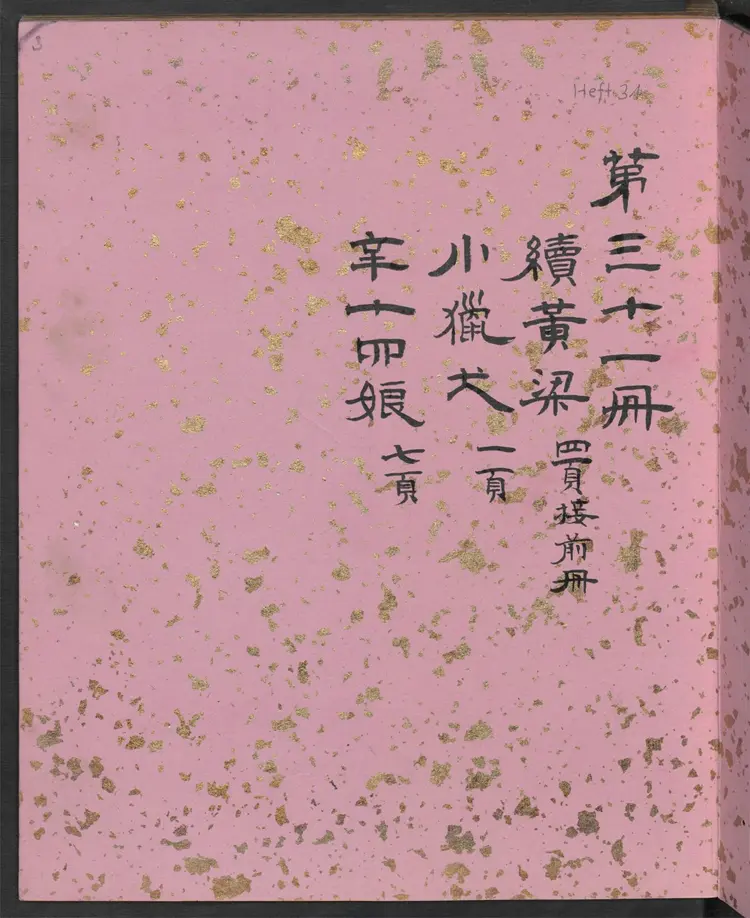 3
Heft 31
第三十一冊
續黃梁 四頁接前冊
小獵犬 一頁
辛十四娘 七頁